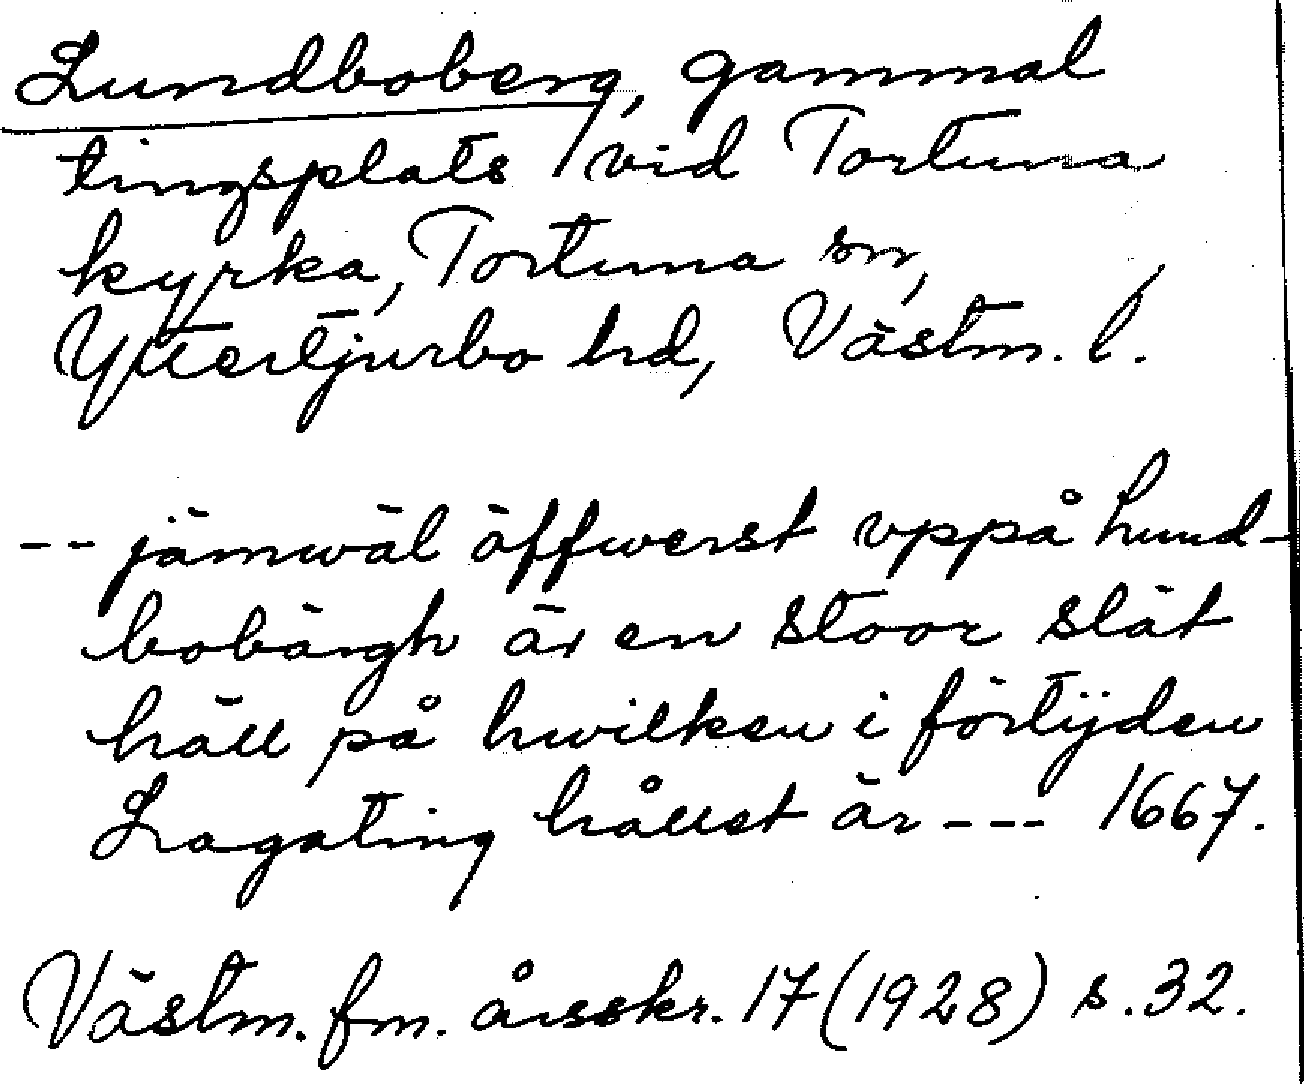 Lundboberg, gammal
tingsplats vid Tortuna
kyrka, Tortuna sn,
Yttertjurbo hd, Västm. l.
-- jämwäl äffwerst vppå hund-
bobärgh är en stoor slät
häll på hwilken i förtijden
Lagating hållet är --- 1667.
Västm. fm. årsskr. 17 (1928) s. 32.